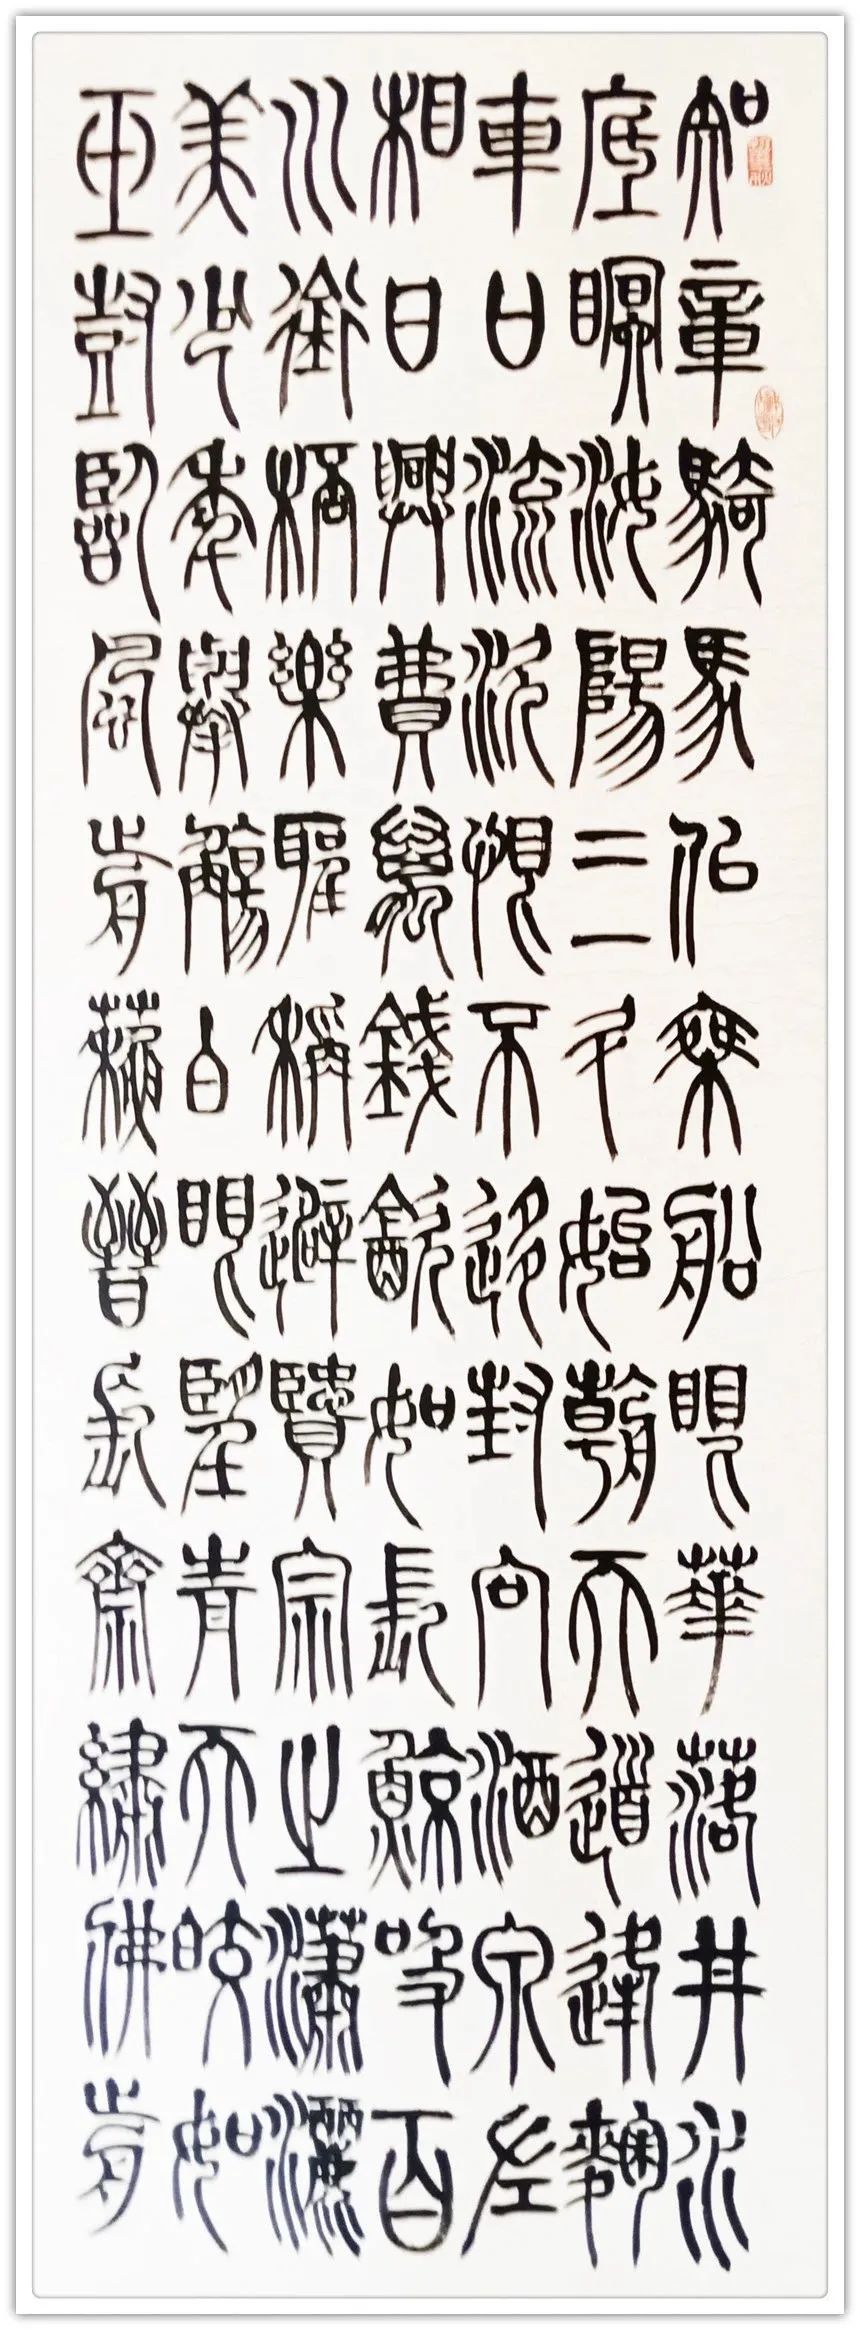 知章騎馬似乘船眼華落井水
底眠汝陽三斗始朝天道逢麴
車口流涎恨不移封向酒泉左
相日興費萬錢飲如長鯨吸百
川銜桮樂聖稱避賢宗之瀟灑
美少年舉觴白眼望青天皎如
玉樹臨風前蘇晉長齋繡佛前